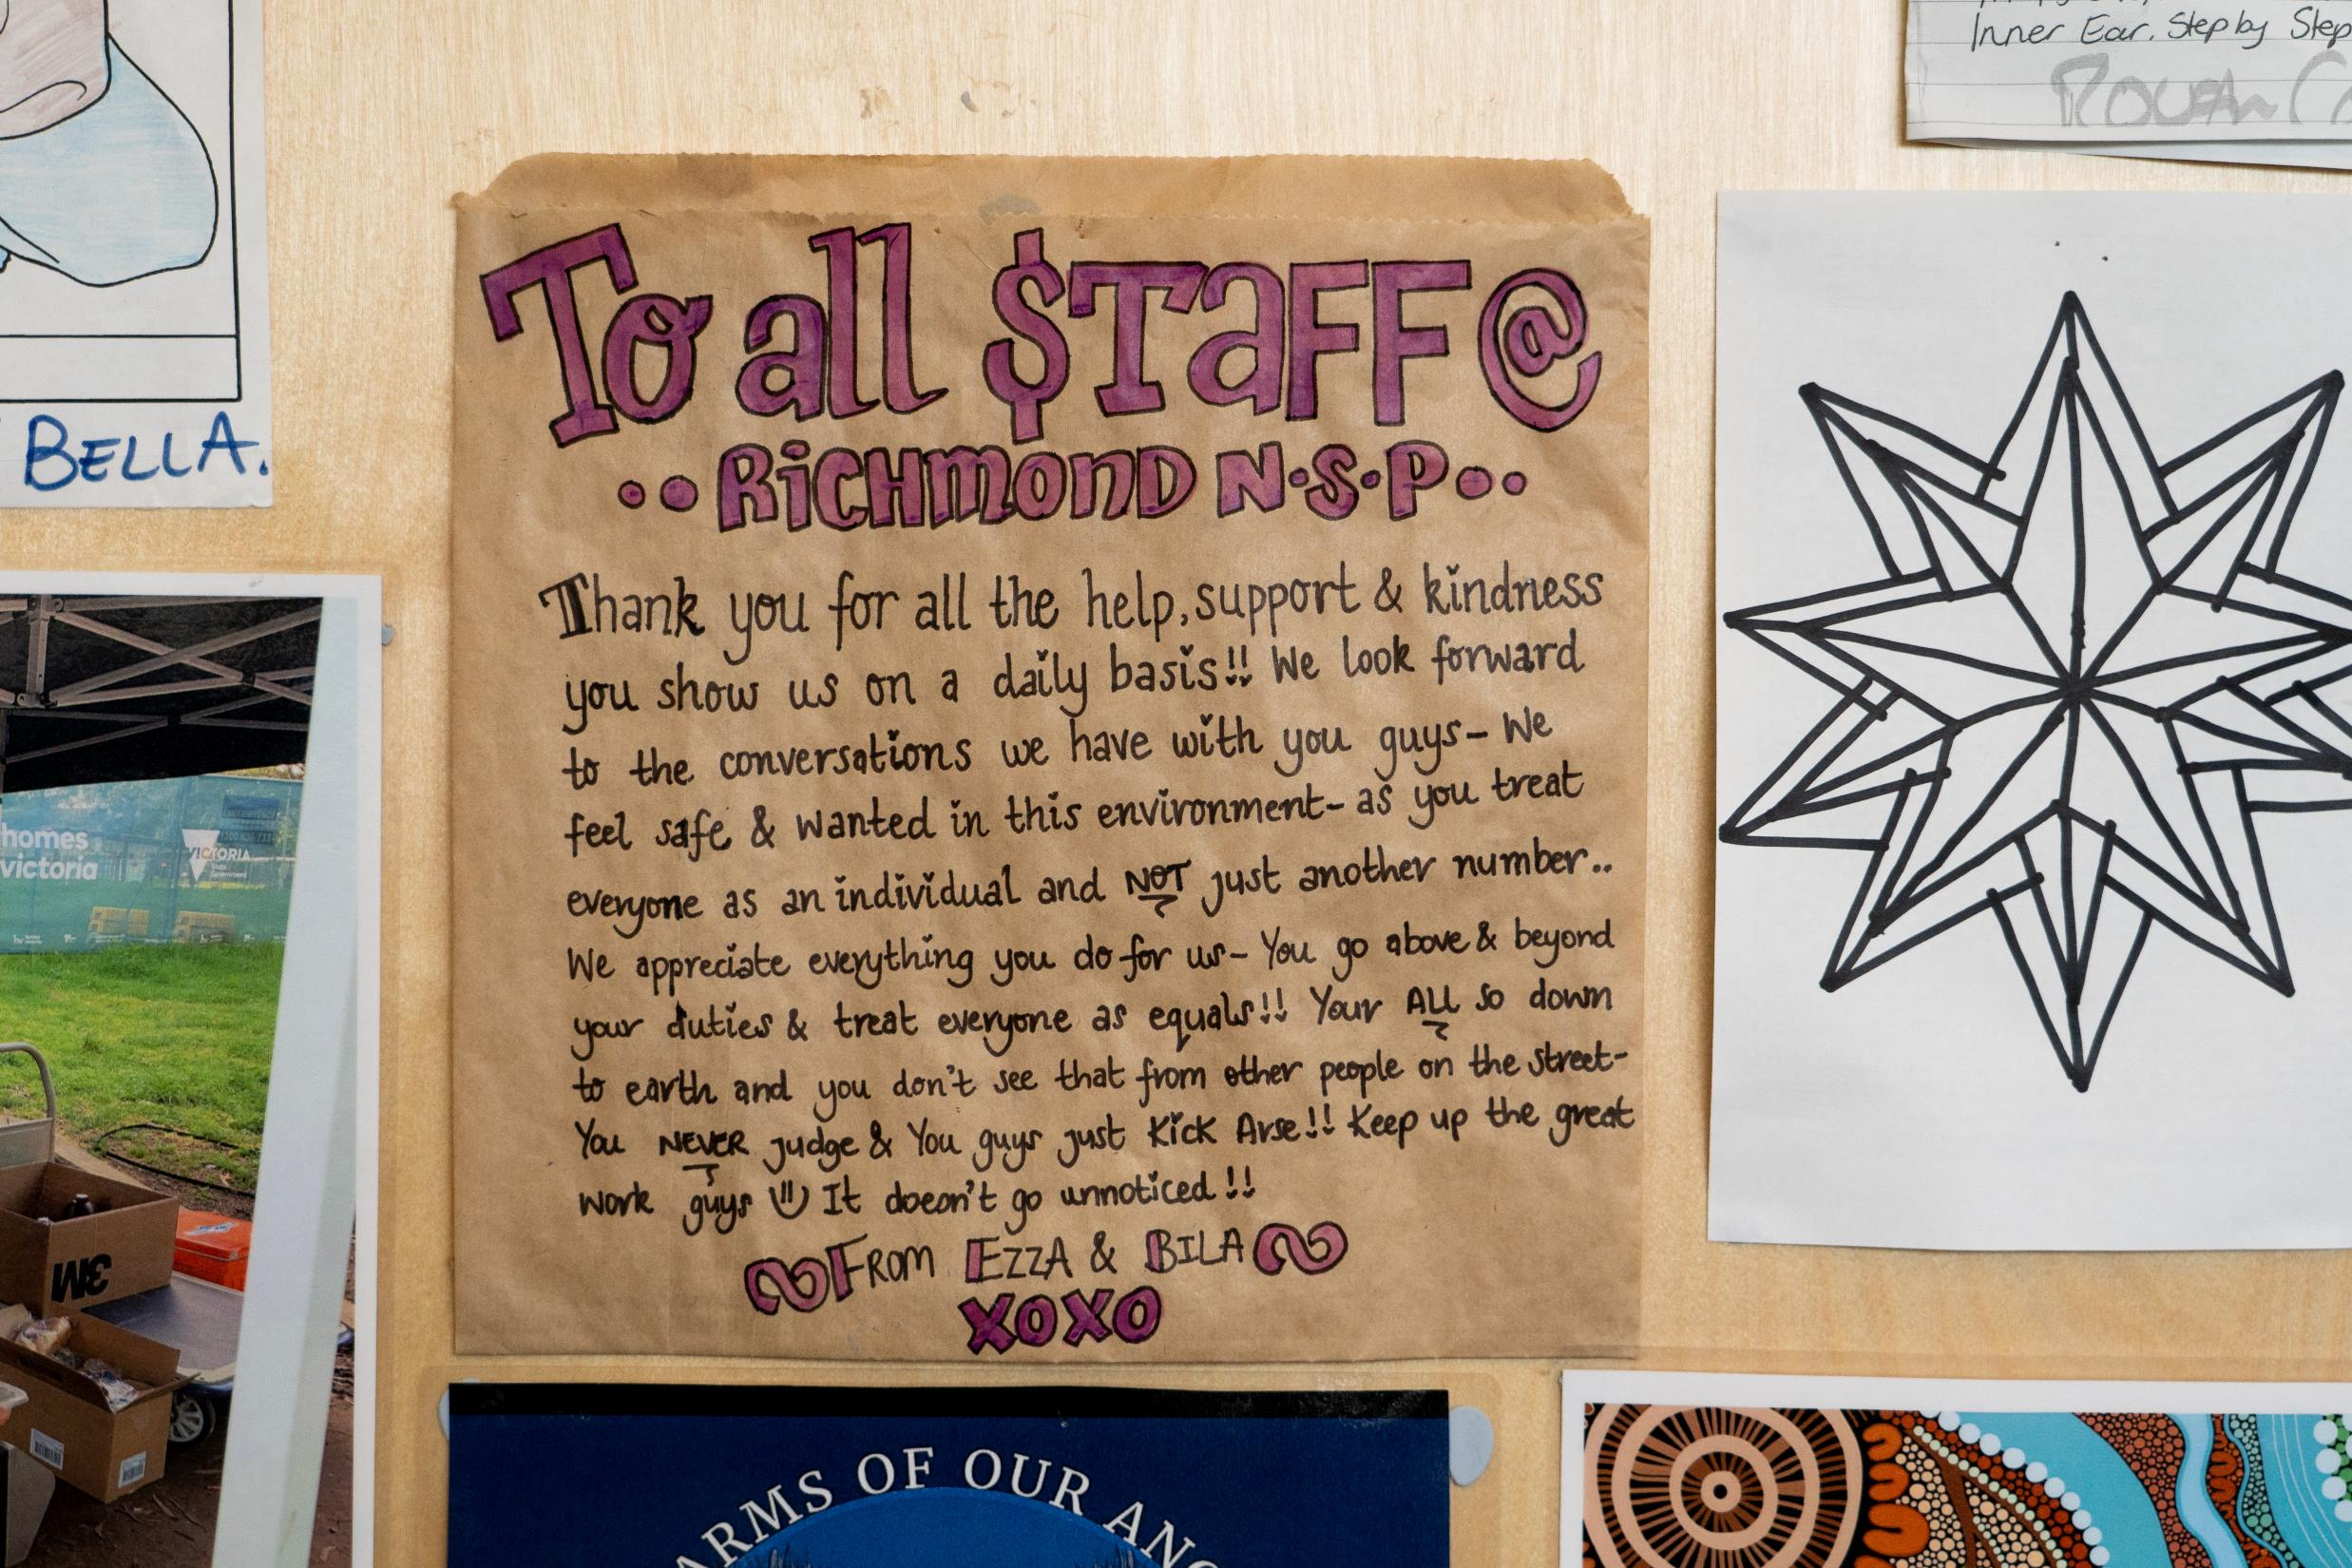 Inner Ear. Step by Step
BELLA.
To all $TaFF @
RiCHmonD N.S.P
Thank you for all the help, support & kindness
you show us on a daily basis!! We look forward
to the conversations we have with you guys- We
feel safe & wanted in this environment- as you treat
everyone as an individual and NOT just another number..
We appreciate everything you do for us- You go above & beyond
your duties & treat everyone as equals!! Your ALL so down
to earth and you don't see that from other people on the street-
You NEVER judge & You guys just Kick Arse!! Keep up the great
work guys It doesn't go unnoticed!!
FROM EZZA & BILA
XOXO
homes
victoria
VICTORIA
State
Government
3M
ARMS OF OUR